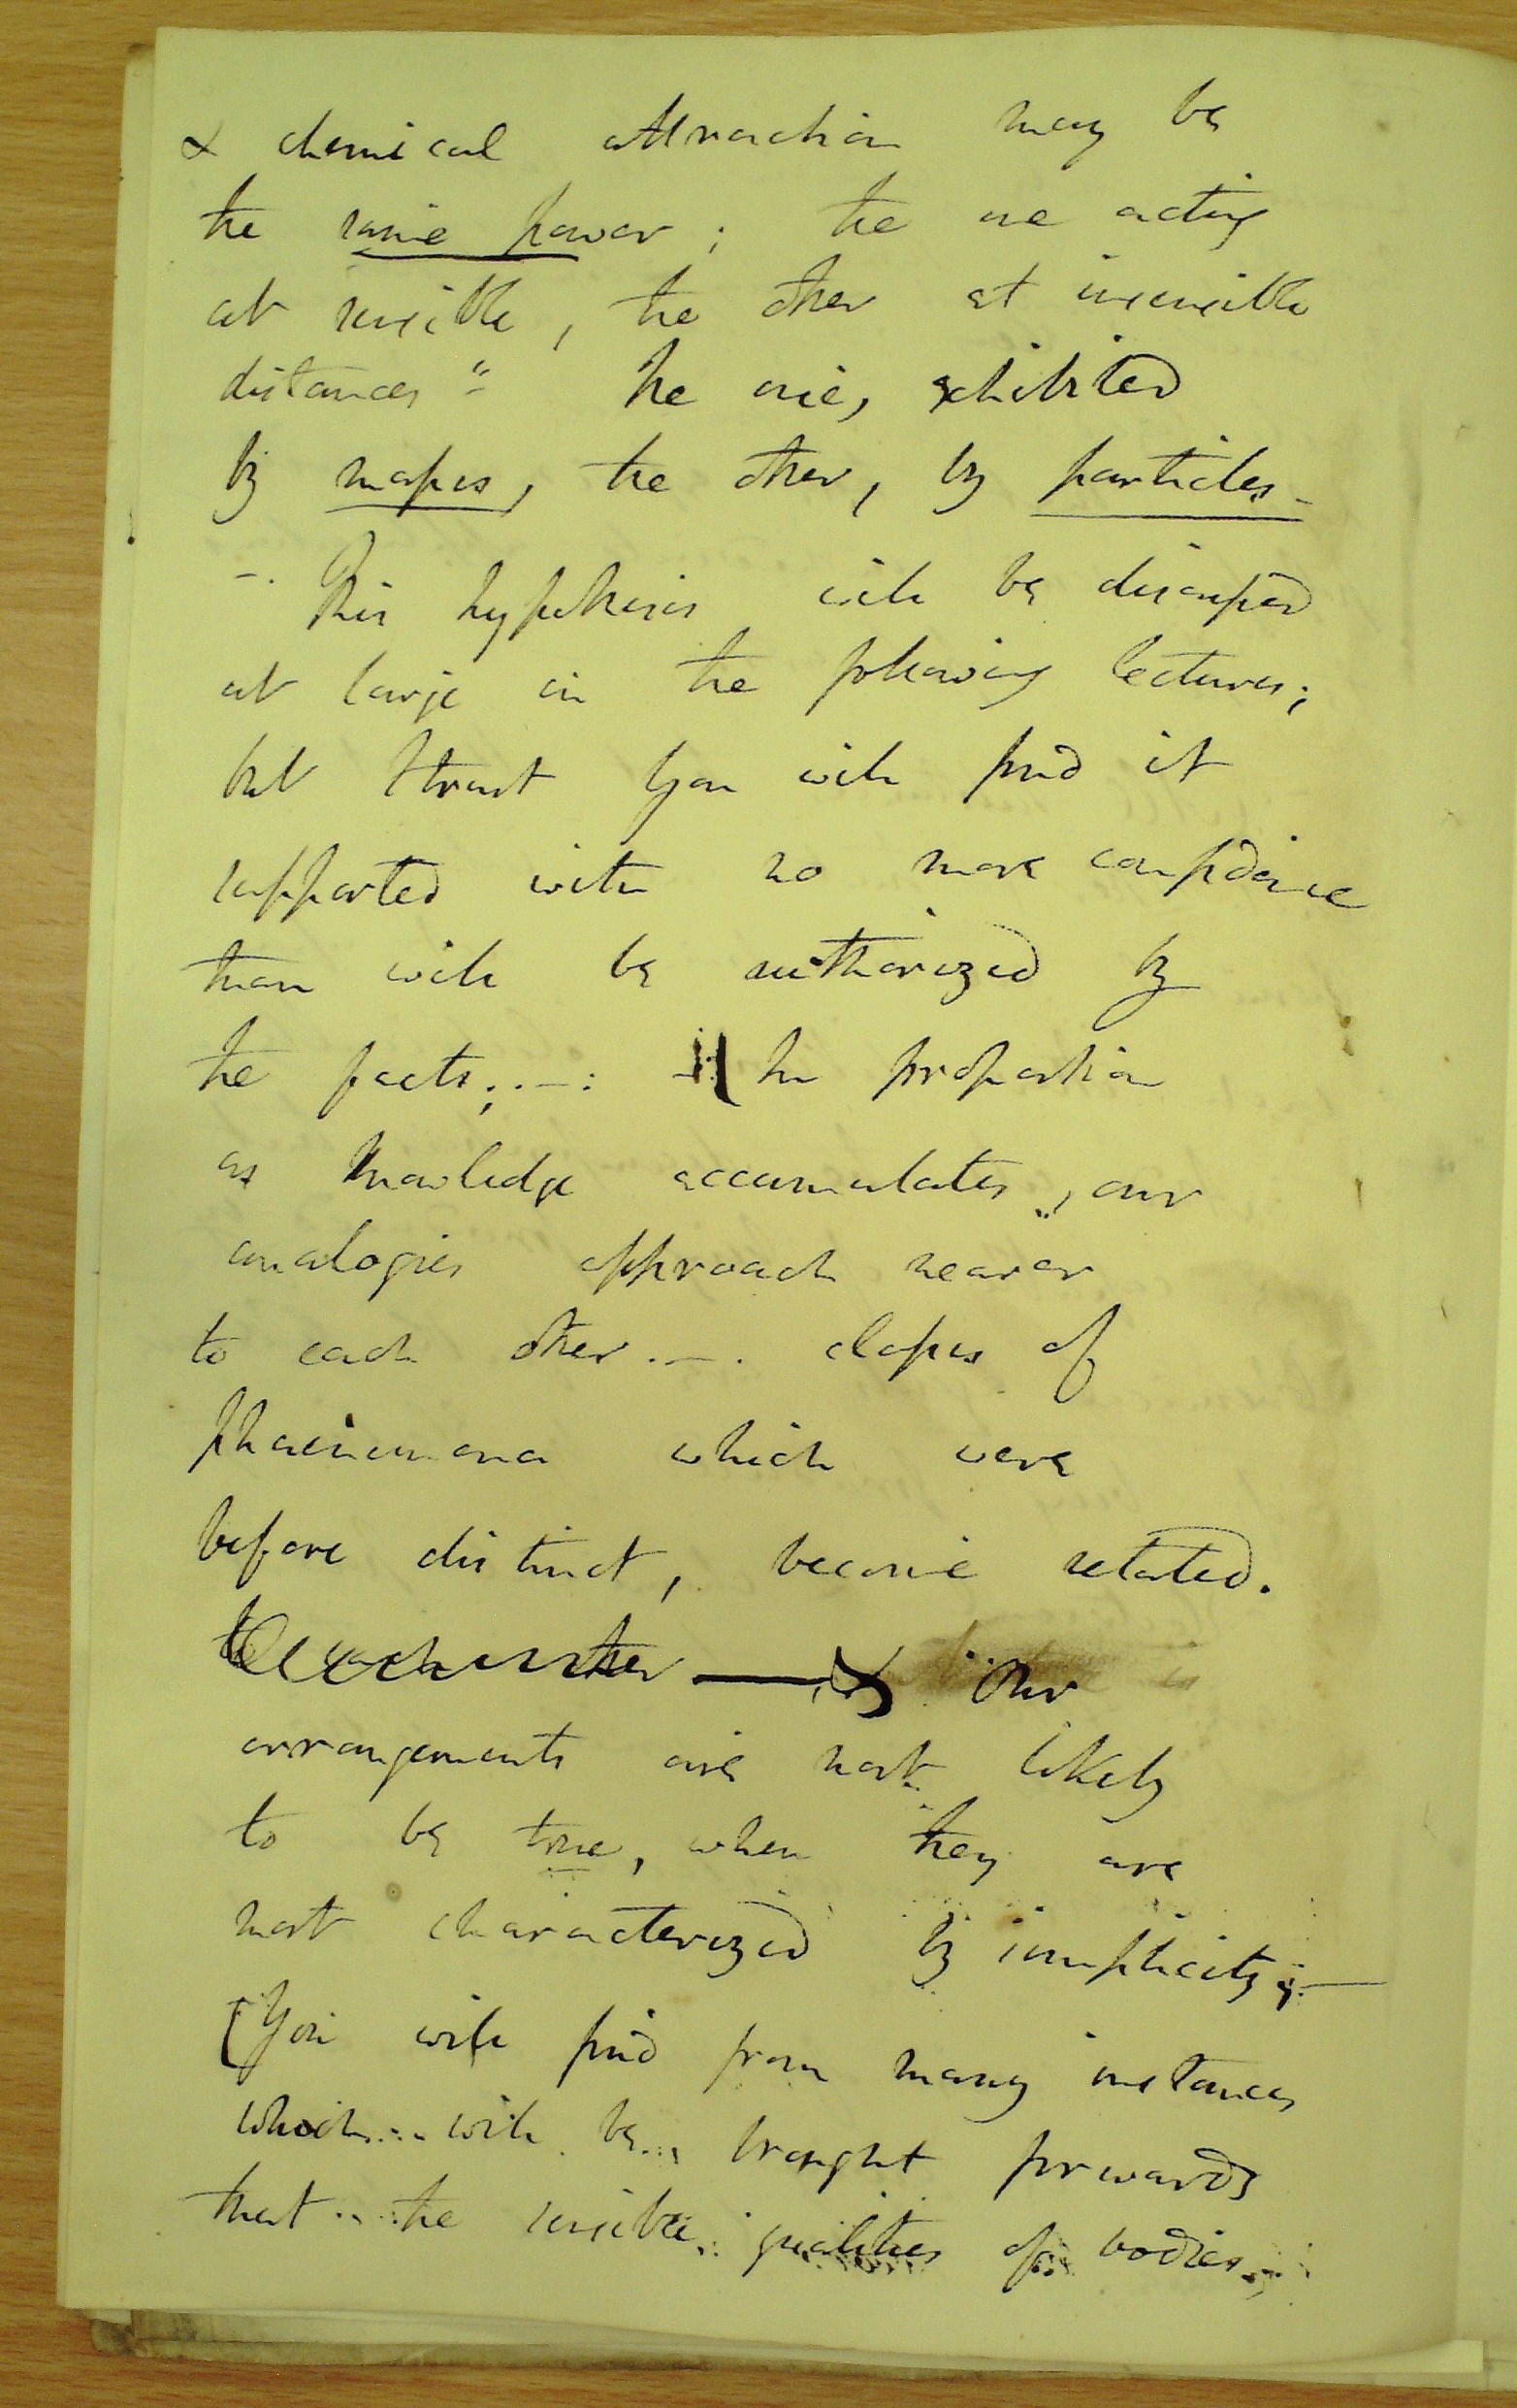 & chemical attraction may be
the same power; the one acting
at sensible, the other at insensible
distances" the one, exhibited
by masses, the other, by particles -
-. This hypothesis will be discussed
at large in the following lectures;
but I trust you will find it
supported with no more confidence
than will be authorized by
the facts; . - : [In proportion
as knowledge accumulates, our
analogies approach nearer
to each other . - . classes of
phaenomena which were
before distinct, become related.
to each other - Our
arrangements are most likely
to be true, when they are
most characterized by simplicity; -
[You will find from many instances
which will be brought forwards
that the sensible qualities of bodies